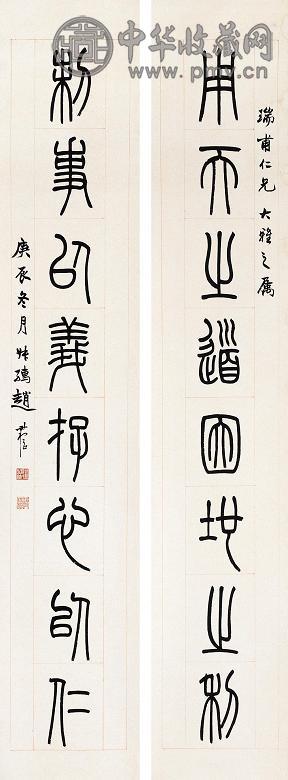 中华收藏网
www.pmv.cn
瑞甫仁兄大雅之属
用天之道因地之利
制事以義存心以仁
庚辰冬月叔孺趙時棡